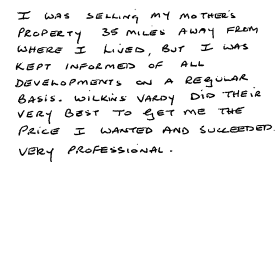 I WAS SELLING MY MOTHER'S
PROPERTY 35 MILES AWAY FROM
WHERE I LIVED, BUT I WAS
KEPT INFORMED OF ALL
DEVELOPMENTS ON A REGULAR
BASIS. WILKINS VARDY DID THEIR
VERY BEST TO GET ME THE
PRICE I WANTED AND SUCCEEDED.
VERY PROFESSIONAL.